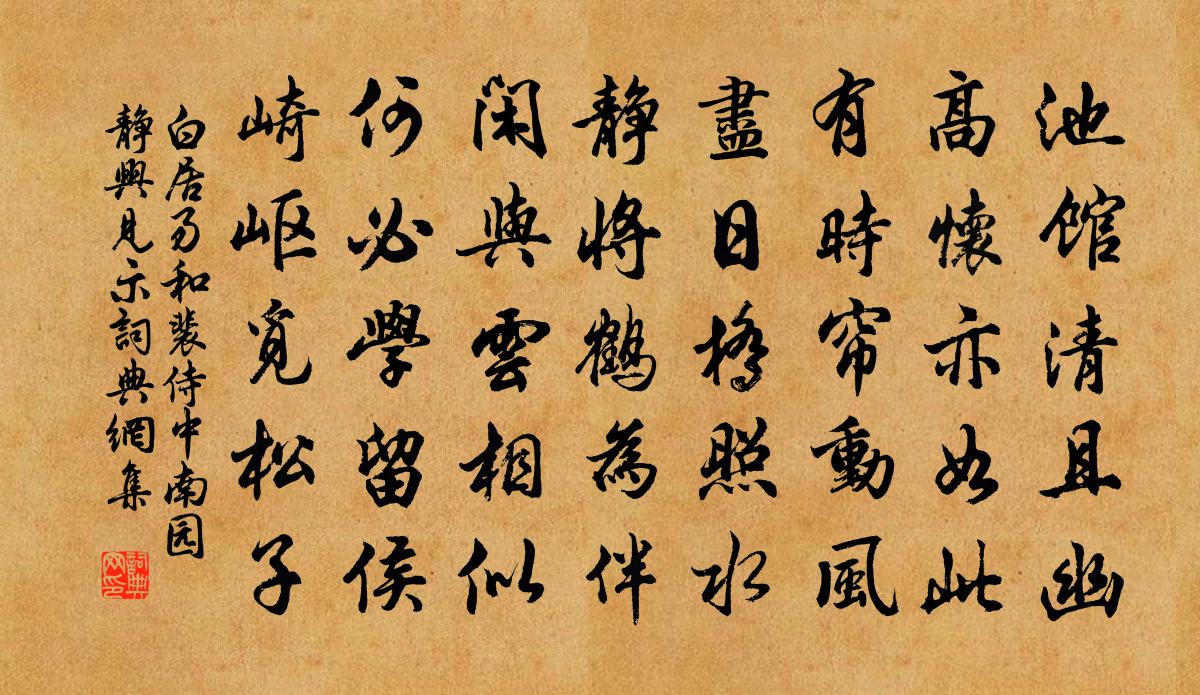 池館清且幽
高懷亦如此
有時帘動風
盡日橋照水
靜將鶴為伴
閑與雲相似
何必學留侯
崎岖覓松子
白居易和裴侍中南园
靜興見示詞典網集
詞典网印